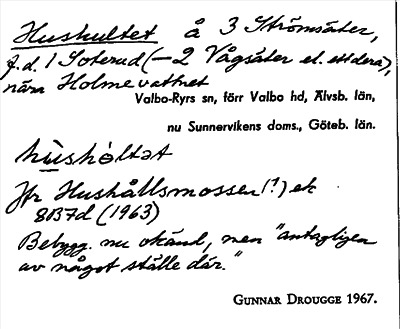 Hushultet å 3 Strömsäter,
f.d. 1 Soterud (– 2 Vågsäter el. ettdera),
nära Holmevattnet
Valbo-Ryrs sn, förr Valbo hd, Älvsb. län,
nu Sunnervikens doms., Göteb. län.
hùshòltət
Jfr Hushållsmossen (!) ek
8B7d (1963)
Bebygg. nu okänd, men "antagligen
av något ställe där."
GUNNAR DROUGGE 1967.